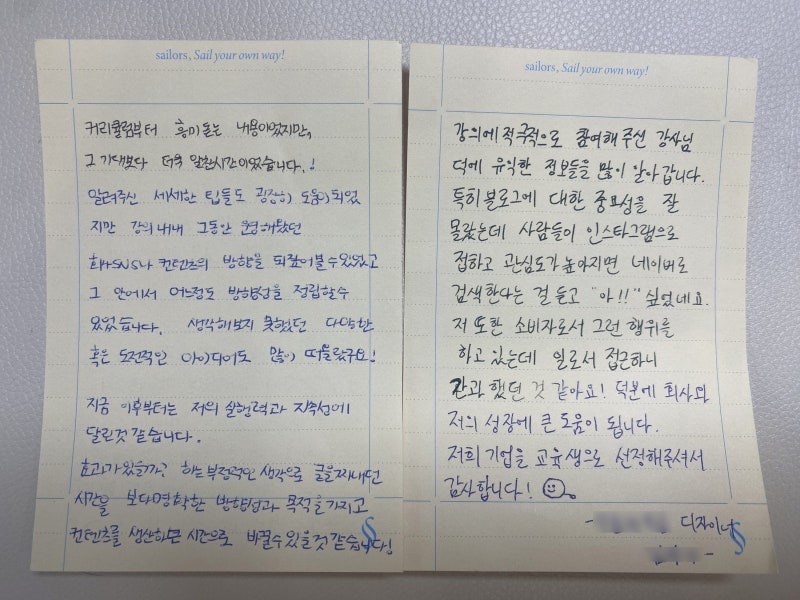 sailors, Sail your own way!
커리큘럼부터 흥미돋는 내용이었지만,
그 기대보다 더욱 알찬시간이었습니다.!
알려주신 세세한 팁들도 굉장히 도움이되었
지만 강의 내내 그동안 운영해왔던
회사SNS나 컨텐츠의 방향을 되짚어볼수있었고
그 안에서 어느정도 방향성을 정립할수
있었습니다. 생각해보지 못했던 다양한
혹은 도전적인 아이디어도 많이 떠올랐구요!
지금 이후부터는 저의 실행력과 지속성에
달린것 같습니다.
효과가 있을까? 하는 부정적인 생각으로 글을짜내던
시간을 보다명확한 방향성과 목적을가지고
컨텐츠를 생산하는 시간으로 바뀔수있을것 같습니다!
sailors, Sail your own way!
강의에 적극적으로 참여해주신 강사님
덕에 유익한 정보들을 많이 알아갑니다.
특히 블로그에 대한 중요성을 잘
몰랐는데 사람들이 인스타그램으로
접하고 관심도가 높아지면 네이버로
검색한다는 걸 듣고 "아!!" 싶었네요.
저 또한 소비자로서 그런 행위를
하고 있는데 일로서 접근하니
간과했던 것 같아요! 덕분에 회사와
저의 성장에 큰 도움이 됩니다.
저희 기업을 교육생으로 선정해주셔서
감사합니다!
- 디자이너
-